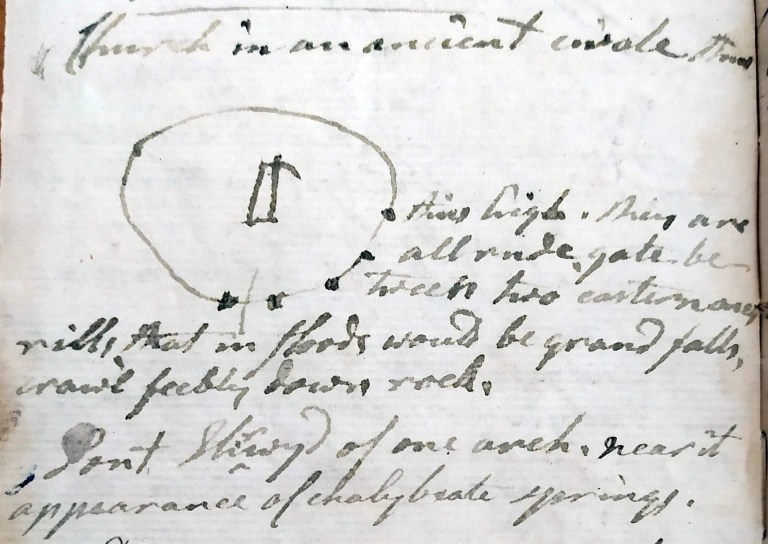 Church in an ancient circle thus
this high. They are
all rude, gate be
tween two eastern ones
rills, that in floods would be grand falls,
crawl feebly down rock.
Pont of one arch. near it
appearance of chalybeate springs.